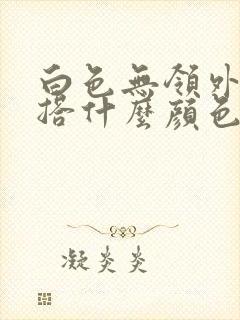 白色無領外
搭什麼顏色
凝炎炎